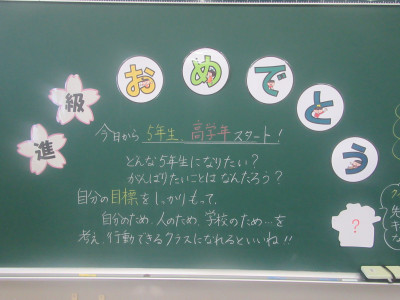 進級おめでとう
今日から 5年生、高学年スタート!
どんな5年生になりたい?
がんばりたいことは なんだろう?
自分の目標をしっかりもって、
自分のため、人のため、学校のため…を
考え、行動できるクラスになれるといいね!!
?